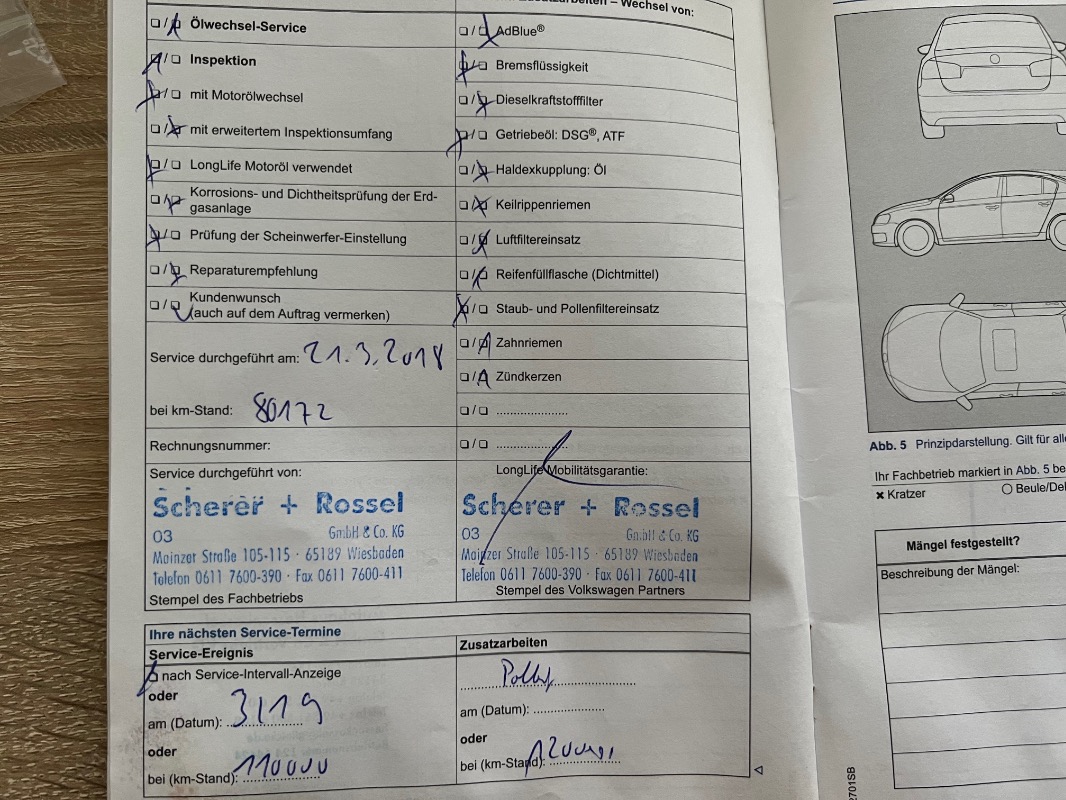 Zusatzarbeiten – Wechsel von:
☐/☒ Ölwechsel-Service
☒/☐ Inspektion
☒/☐ mit Motorölwechsel
☐/☒ mit erweitertem Inspektionsumfang
☒/☐ LongLife Motoröl verwendet
☐/☒ Korrosions- und Dichtheitsprüfung der Erd-
gasanlage
☒/☐ Prüfung der Scheinwerfer-Einstellung
☐/☒ Reparaturempfehlung
☐/☒ Kundenwunsch
(auch auf dem Auftrag vermerken)
Service durchgeführt am: 21.3.2018
bei km-Stand: 80172
Rechnungsnummer:
Service durchgeführt von:
Scherer + Rossel
03 GmbH & Co. KG
Mainzer Straße 105-115 · 65189 Wiesbaden
Telefon 0611 7600-390 · Fax 0611 7600-411
Stempel des Fachbetriebs
☐/☒ AdBlue®
☒/☐ Bremsflüssigkeit
☐/☒ Dieselkraftstofffilter
☒/☐ Getriebeöl: DSG®, ATF
☐/☒ Haldexkupplung: Öl
☐/☒ Keilrippenriemen
☐/☒ Luftfiltereinsatz
☐/☒ Reifenfüllflasche (Dichtmittel)
☒/☐ Staub- und Pollenfiltereinsatz
☐/☒ Zahnriemen
☐/☒ Zündkerzen
☐/☐ ....................
☐/☐ ....................
LongLife Mobilitätsgarantie:
Scherer + Rossel
03 GmbH & Co. KG
Mainzer Straße 105-115 · 65189 Wiesbaden
Telefon 0611 7600-390 · Fax 0611 7600-411
Stempel des Volkswagen Partners
Ihre nächsten Service-Termine
Service-Ereignis
☒ nach Service-Intervall-Anzeige
oder
am (Datum): 3/19
oder
bei (km-Stand): 110000
Zusatzarbeiten
am (Datum): ....................
oder
bei (km-Stand): 120000
Abb. 5 Prinzipdarstellung. Gilt für
Ihr Fachbetrieb markiert in Abb. 5
× Kratzer
○ Beule/
Mängel festgestellt?
Beschreibung der Mängel:
2701SB